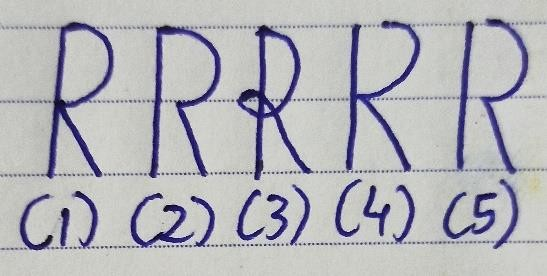 R R R R R
(1) (2) (3) (4) (5)